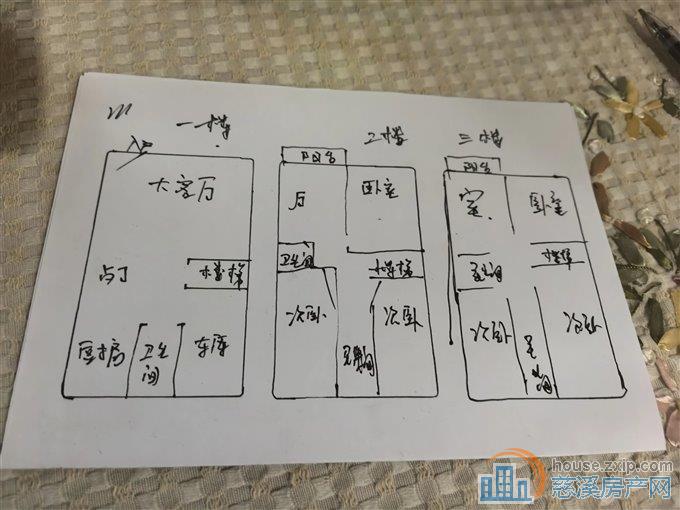 一楼
大客厅
楼梯
卫生间
车库
二楼
阳台
厅
卧室
卫生间
楼梯
次卧
次卧
三楼
阳台
卧室
楼梯
次卧
次卧
house.zxip.com
慈溪房产网